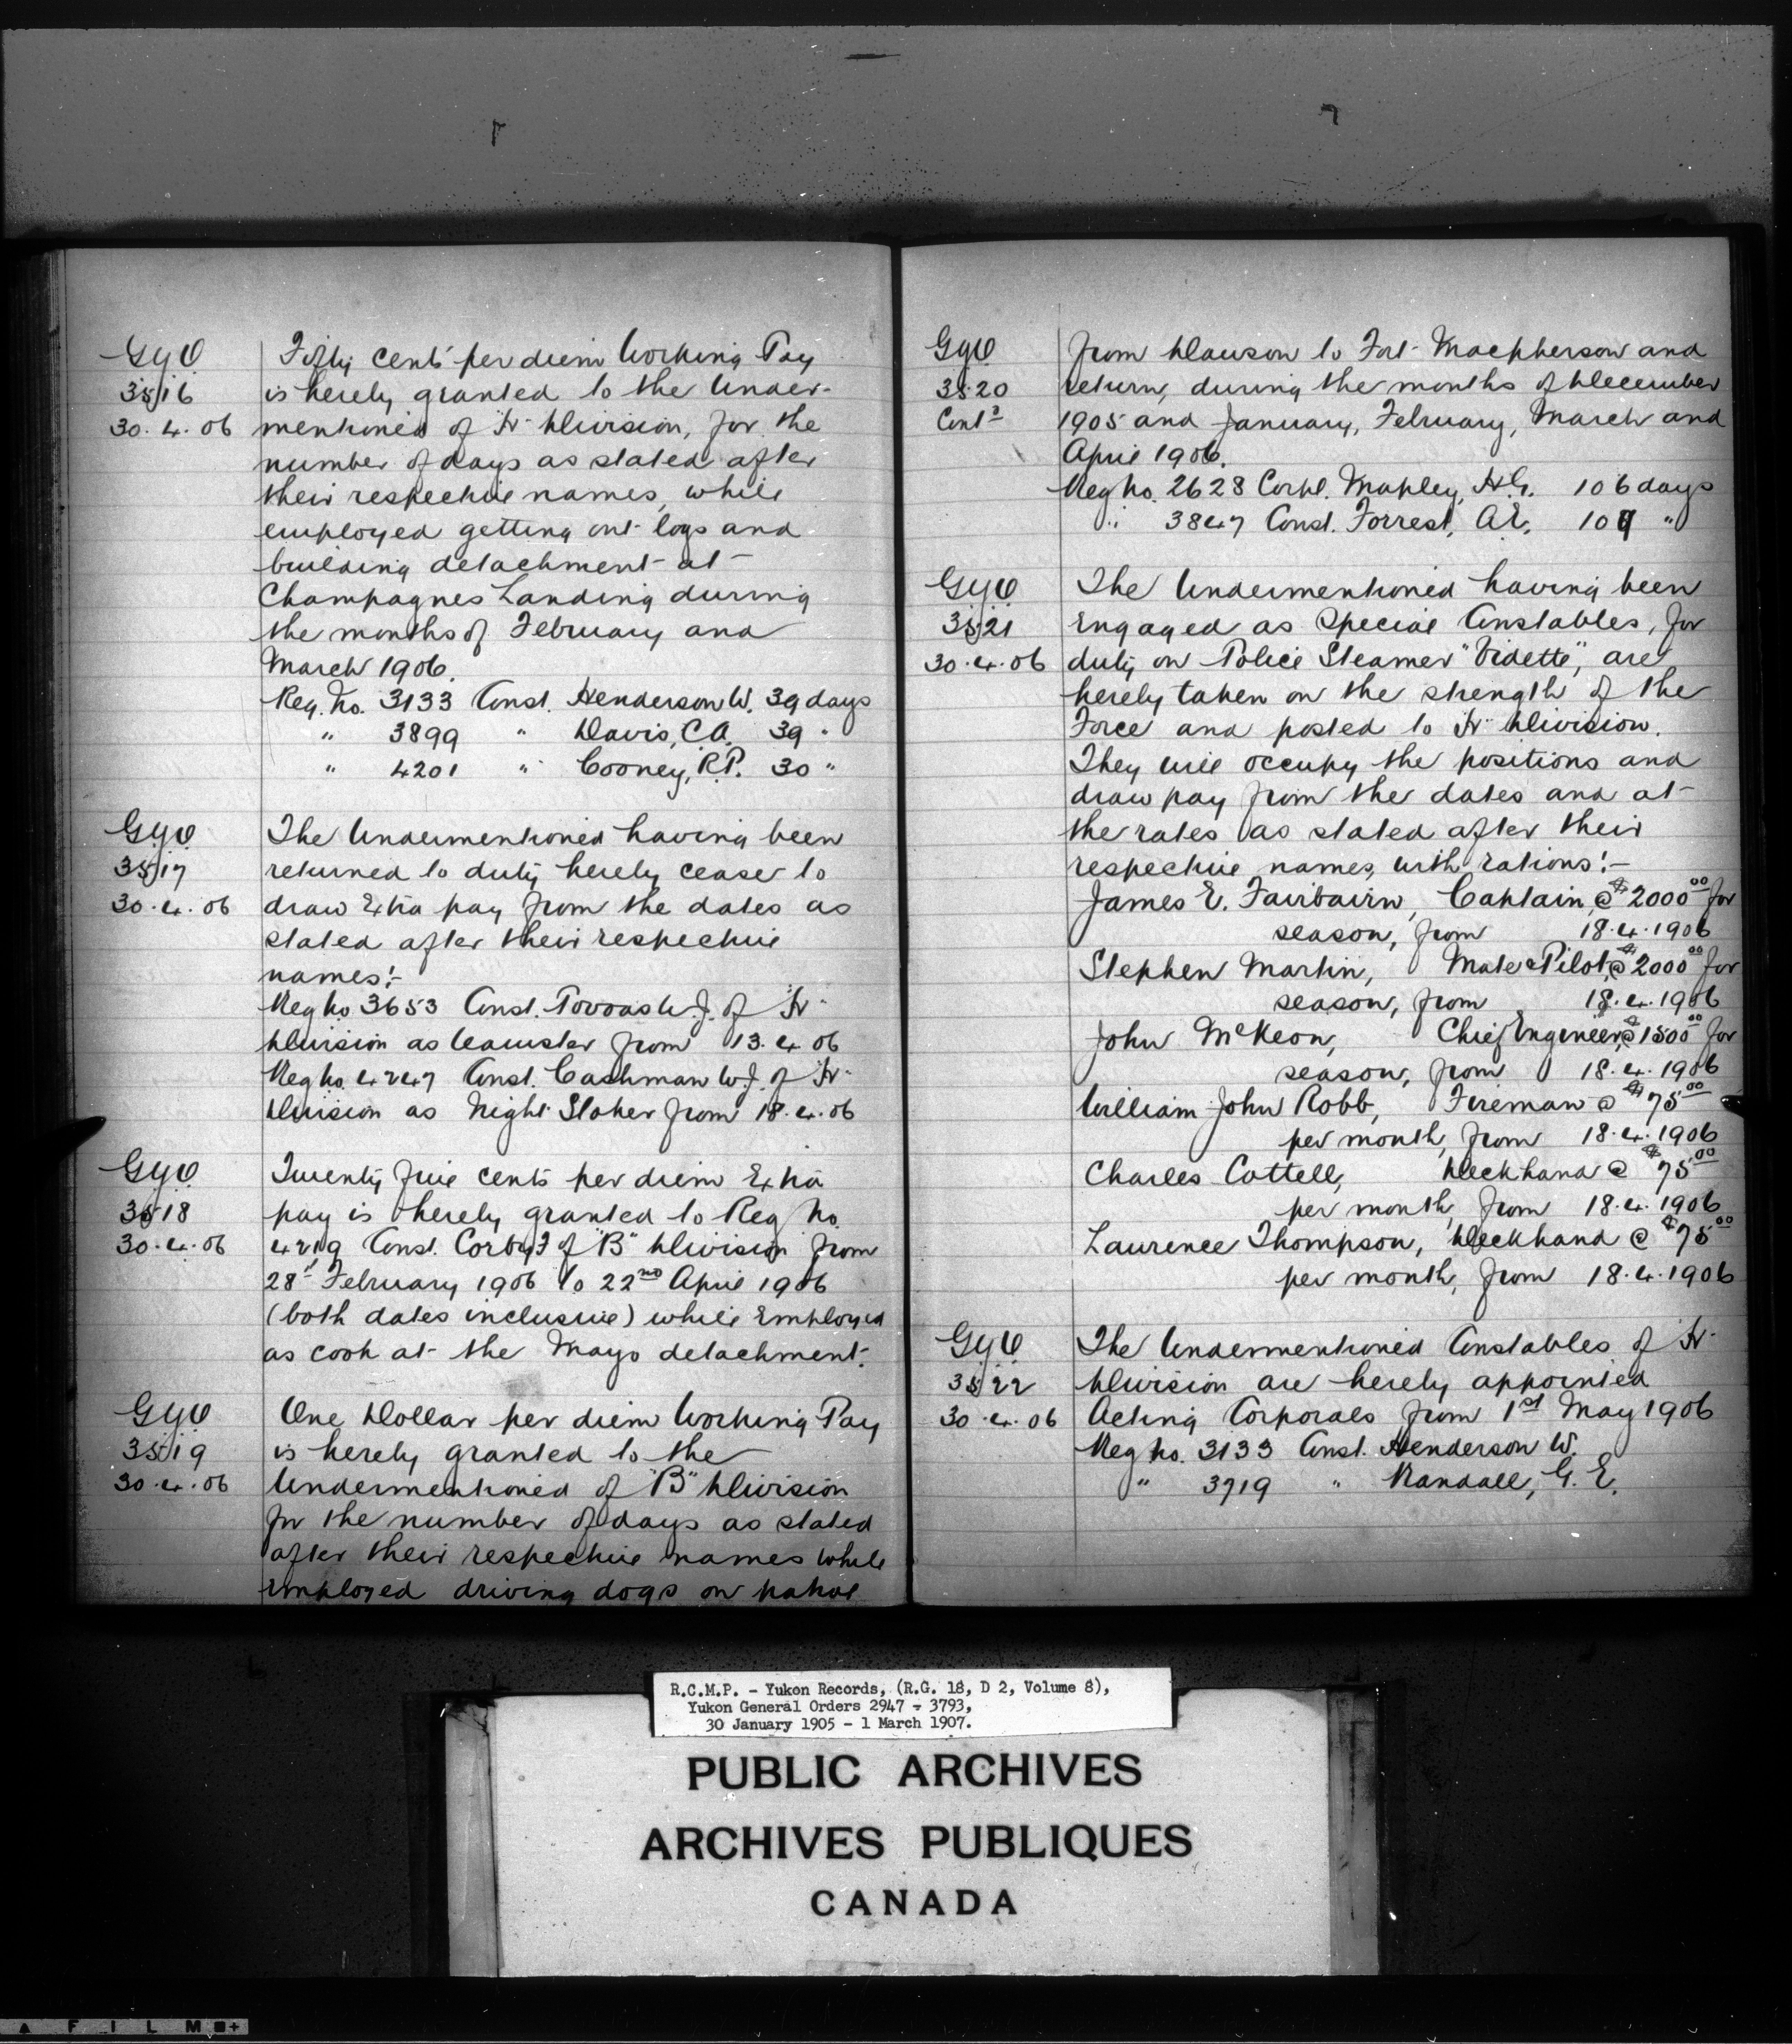 GyO
3516
30.4.06
Fifty cents per diem Working Pay
is hereby granted to the Under-
mentioned of "H" Division, for the
number of days as stated after
their respective names, while
employed getting out logs and
building detachment at
Champagnes Landing during
the months of February and
March 1906.
Reg. No. 3133 Const. Henderson W. 39 days
" 3899 " Davis, C.A. 39 "
" 4201 " Cooney, R.P. 30 "
GyO
3517
30.4.06
The Undermentioned having been
returned to duty hereby cease to
draw Extra pay from the dates as
stated after their respective
names:-
Reg No 3653 Const. J. of "H"
Division as teamster from 13.4.06
Reg No. 4247 Const. Cashman W.J. of "H"
Division as Night Stoker from 18.4.06
GyO
3518
30.4.06
Twenty five cents per diem Extra
pay is hereby granted to Reg No.
4219 Const. Corby F of "B" Division from
28th February 1906 to 22nd April 1906
(both dates inclusive) while Employed
as cook at the Mayo detachment.
GyO
3519
30.4.06
One Dollar per diem Working Pay
is hereby granted to the
Undermentioned of "B" Division
for the number of days as stated
after their respective names while
employed driving dogs on patrol
GyO
3520
Contd
from Dawson to Fort Macpherson and
return, during the months of December
1905 and January, February, March and
April 1906.
Reg No. 2628 Corpl. Mapley, H.G. 106 days
" 3847 Const. Forrest, A.E. 109 "
GyO
3521
30.4.06
The Undermentioned having been
Engaged as Special Constables, for
duty on Police Steamer "Vidette", are
hereby taken on the strength of the
Force and posted to "H" Division.
They will occupy the positions and
draw pay from the dates and at
the rates as stated after their
respective names, with rations:-
James E. Fairbairn, Captain, @ $2000.00 for
season, from 18.4.1906
Stephen Martin, Mate & Pilot, @ $2000.00 for
season, from 18.4.1906
John McKeon, Chief Engineer, @ $1500.00 for
season, from 18.4.1906
William John Robb, Fireman @ $75.00
per month, from 18.4.1906
Charles Cottell, Deckhand @ $75.00
per month, from 18.4.1906
Laurence Thompson, Deckhand @ $75.00
per month, from 18.4.1906
GyO
3522
30.4.06
The Undermentioned Constables of "H"
Division are hereby appointed
Acting Corporals from 1st May 1906
Reg No. 3133 Const. Henderson W.
" 3719 " Randall, G.E.
R.C.M.P. - Yukon Records, (R.G. 18, D 2, Volume 8),
Yukon General Orders 2947 - 3793,
30 January 1905 - 1 March 1907.
PUBLIC ARCHIVES
ARCHIVES PUBLIQUES
CANADA